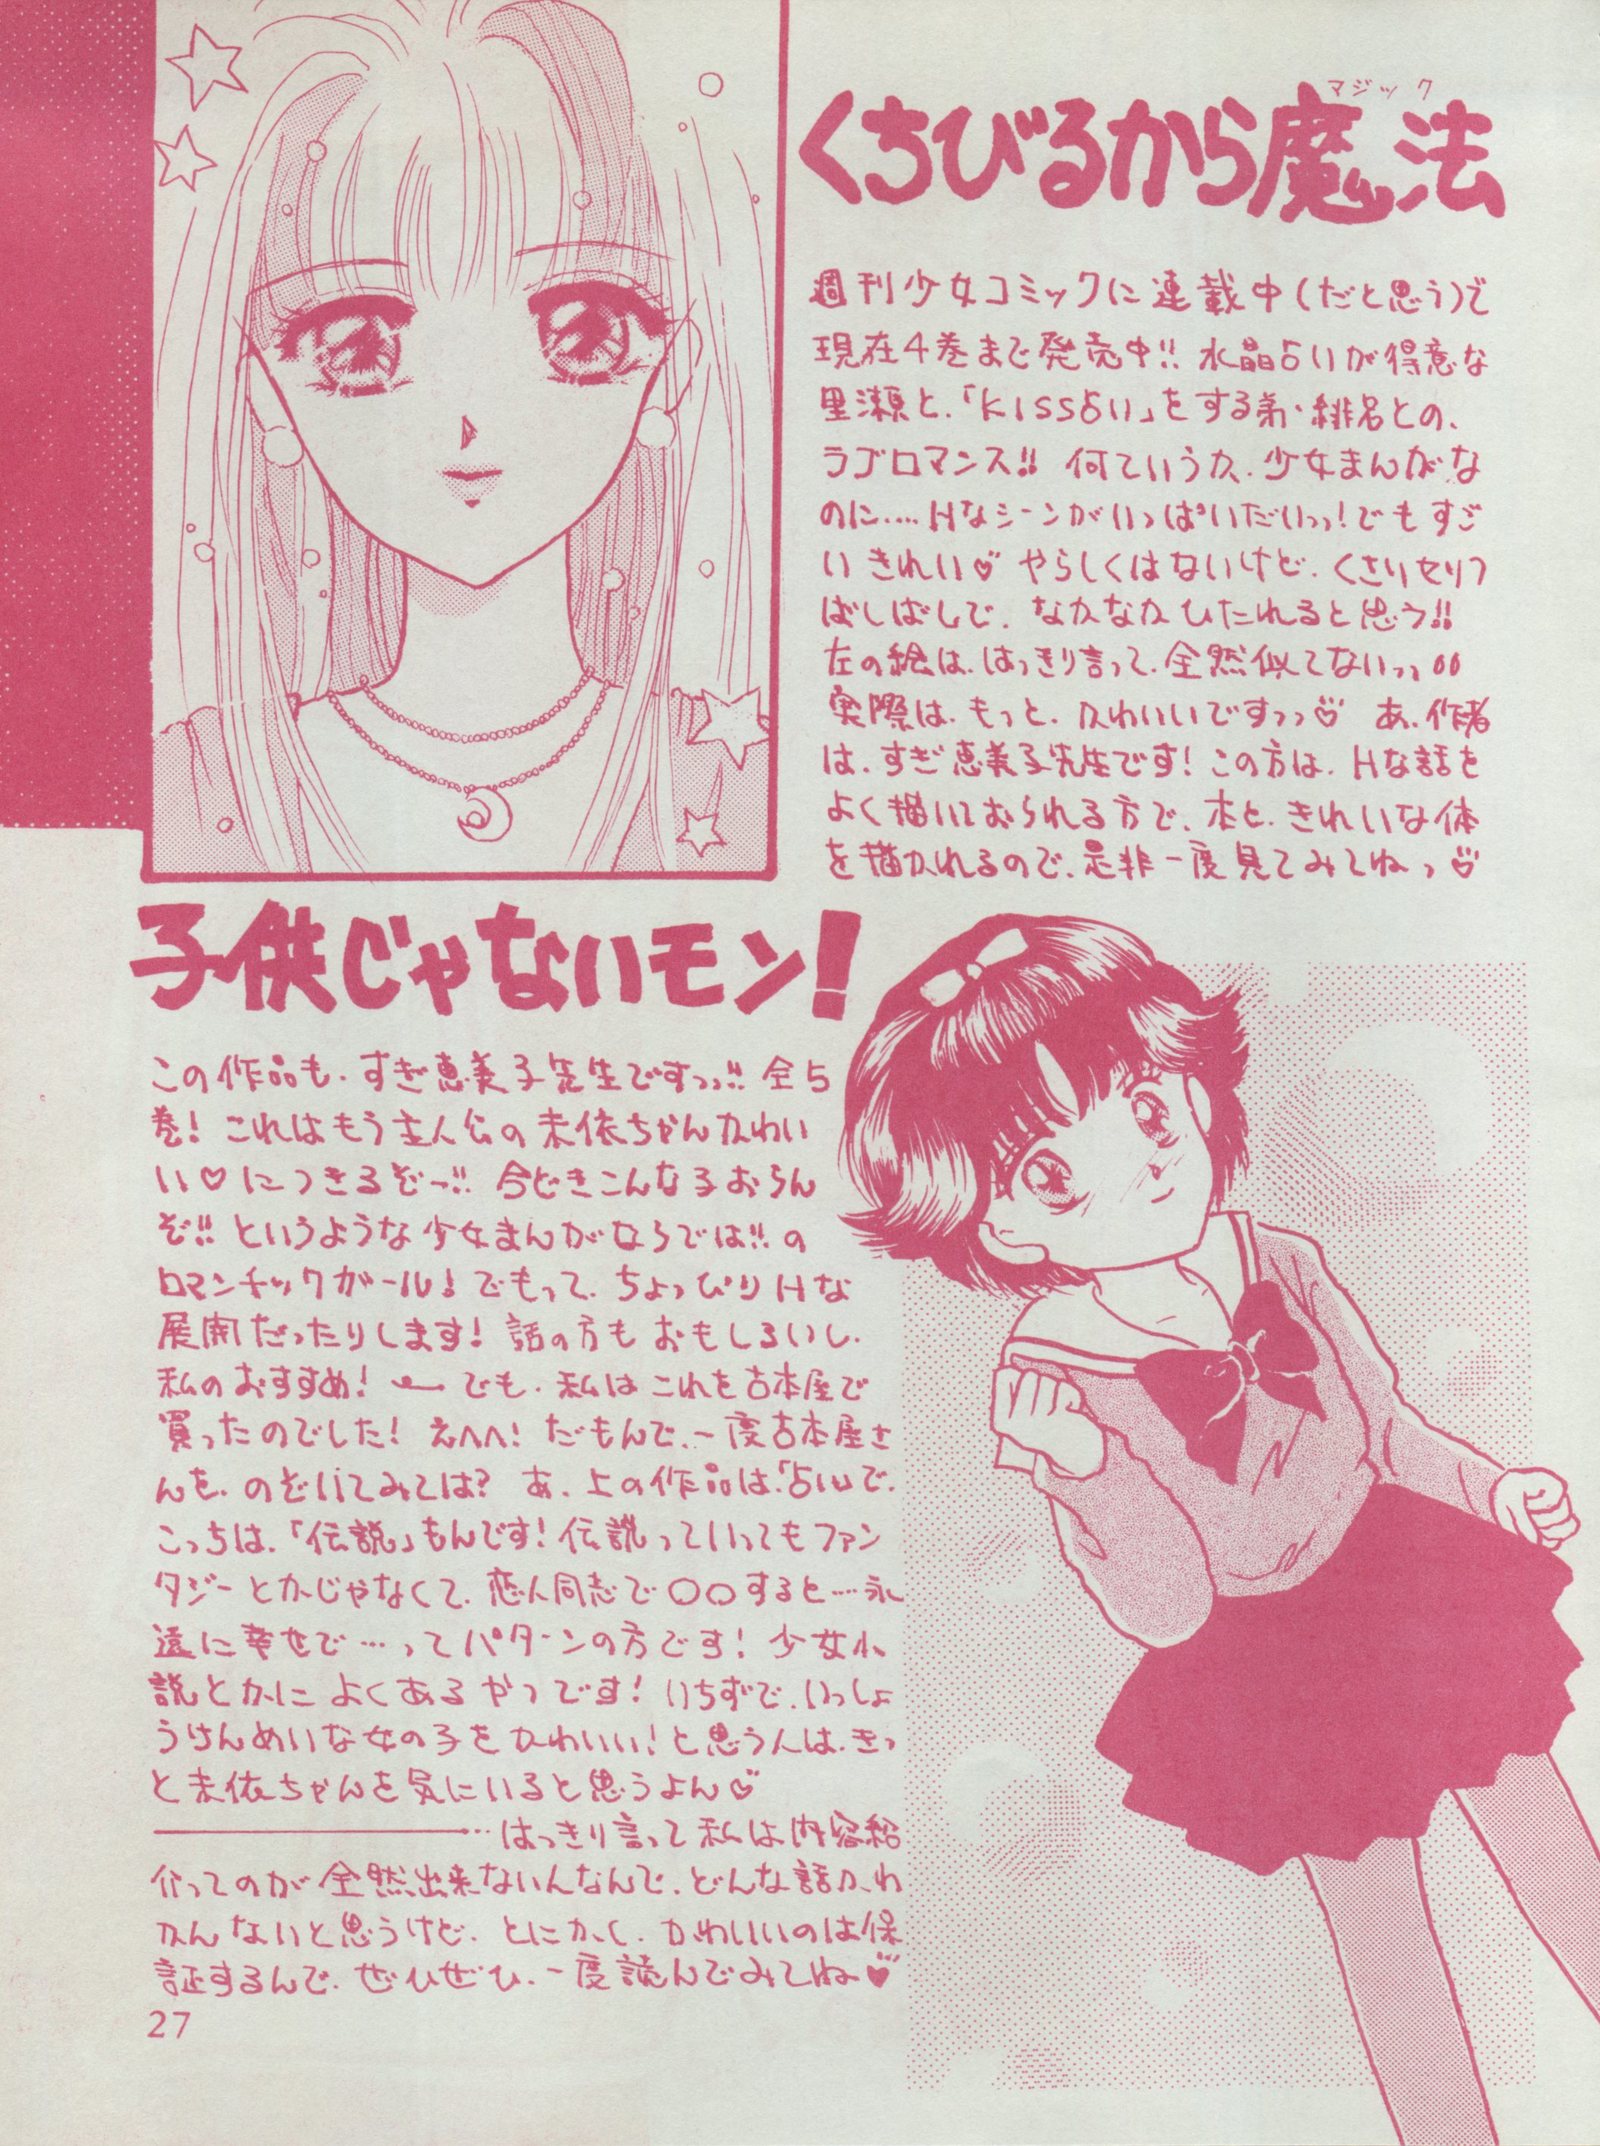 くちびるから魔法
マジック
週刊少女コミックに連載中(だと思う)で
現在4巻まで発売中!! 水晶占いが得意な
里瀬と、「KISS占い」をする弟・緋名との、
ラブロマンス!! 何ていうか、少女まんがな
のに…. Hなシーンがいっぱいだいっっ!でもすご
いきれい♡ やらしくはないけど、くさいセリフ
ばしばしで、なかなかひたれると思う!!
左の絵は、はっきり言って、全然似てないっっ
実際は、もっと、かわいいですっっ♡ あ、作者
は、すぎ恵美子先生です!この方は、Hな話を
よく描いておられる方で、本と、きれいな体
を描かれるので、是非一度見てみてねっ♡
子供じゃないモン!
この作品も、すぎ恵美子先生ですっっ!! 全5
巻! これはもう主人公の未依ちゃんかわい
い♡につきるぞーっ!! 今どきこんな子おらん
ぞ!! というような少女まんがならでは!!の
ロマンチックガール! でもって、ちょっぴりHな
展開だったりします! 話の方もおもしろいし、
私のおすすめ! でも、私はこれを古本屋で
買ったのでした! えへへ! だもんで、一度古本屋さ
んを、のぞいてみては? あ、上の作品は、「占い」で、
こっちは、「伝説」もんです! 伝説っていってもファン
タジーとかじゃなくて、恋人同志で〇〇すると…永
遠に幸せで…ってパターンの方です! 少女小
説とかによくあるやつです! いちずで、いっしょ
うけんめいな女の子をかわいい!と思う人は、きっ
と未依ちゃんを気にいると思うよん♡
…はっきり言って私は内容紹
介ってのが全然出来ないんなんで、どんな話か、わ
かんないと思うけど、とにかく、かわいいのは保
証するんで、ぜひぜひ、一度読んでみてね♥
27